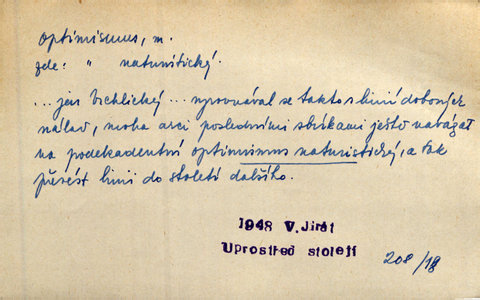 optimismus, m.
zde: " naturistický.
... jen Vrchlický ... vyrovnával se takto s linií dobových
nálad, moha arci posledními sbírkami ještě navázat
na podekadentní optimismus naturistický, a tak
přenést linii do století dalšího.
1948 V. Jirát
Uprostřed století
208/18